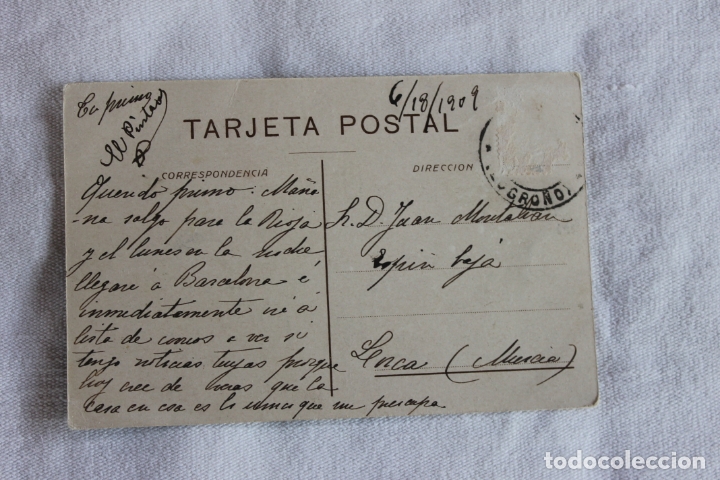 Tu primo
El Pintao
6/18/1909
TARJETA POSTAL
CORRESPONDENCIA
DIRECCION
LOGROÑO
Querido primo: Maña-
-na salgo para la Rioja
y el lunes en la noche
llegaré á Barcelona é
inmediatamente iré á
lista de correos a ver si
tengo noticias tuyas porque
hoy cree de veras que la
casa en es lo que me preocupa
Sr. D. Juan
baja
Lorca (Murcia)
todocoleccion.net